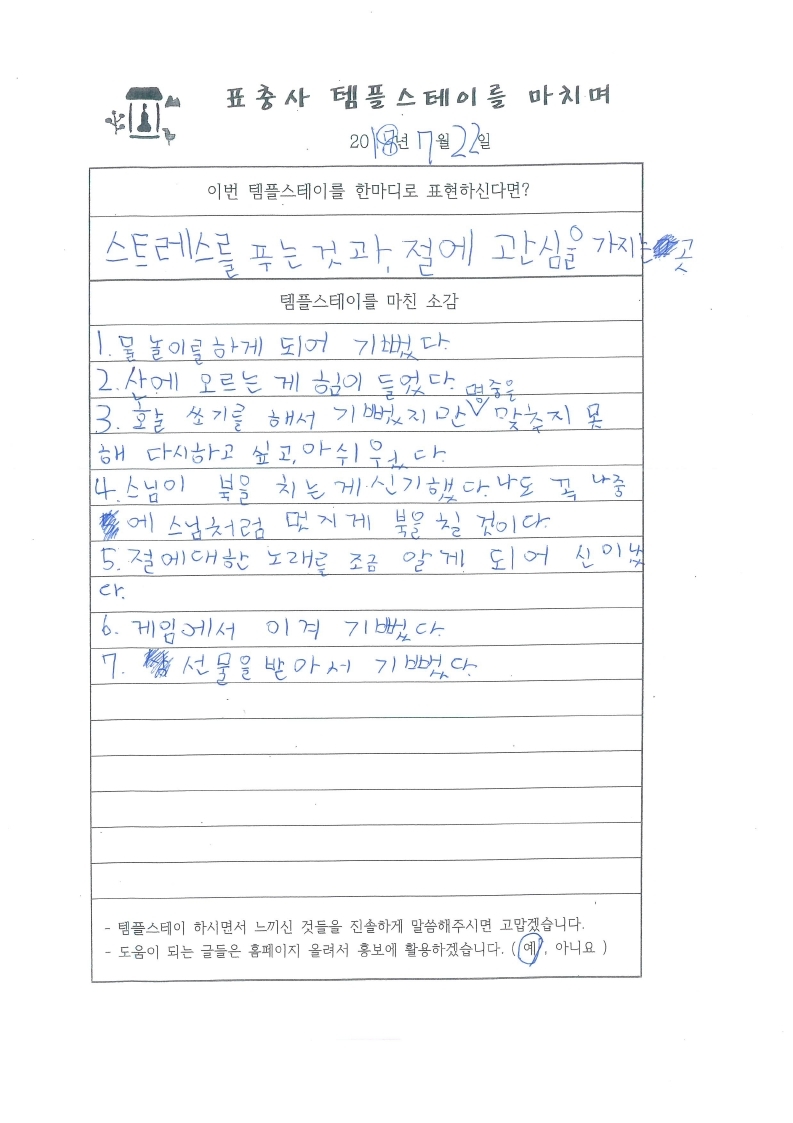 표충사 템플스테이를 마치며
201 년 7월 22일
이번 템플스테이를 한마디로 표현하신다면?
스트레스를 푸는 것과, 절에 관심을 가지는 곳
템플스테이를 마친 소감
1. 물놀이를하게 되어 기뻤다.
2. 산에 오르는 게 힘이 들었다.
3. 활 쏘기를 해서 기뻤지만 명중을 맞추지 못
해 다시하고 싶고, 아쉬웠다.
4. 스님이 북을 치는게 신기했다. 나도 꼭 나중
에 스님처럼 멋지게 북을 칠 것이다.
5. 절에대한 노래를 조금 알게 되어 신이났
다.
6. 게임에서 이겨 기뻤다.
7. 선물을 받아서 기뻤다.
- 템플스테이 하시면서 느끼신 것들을 진솔하게 말씀해주시면 고맙겠습니다.
- 도움이 되는 글들은 홈페이지 올려서 홍보에 활용하겠습니다. ( 예 , 아니요 )